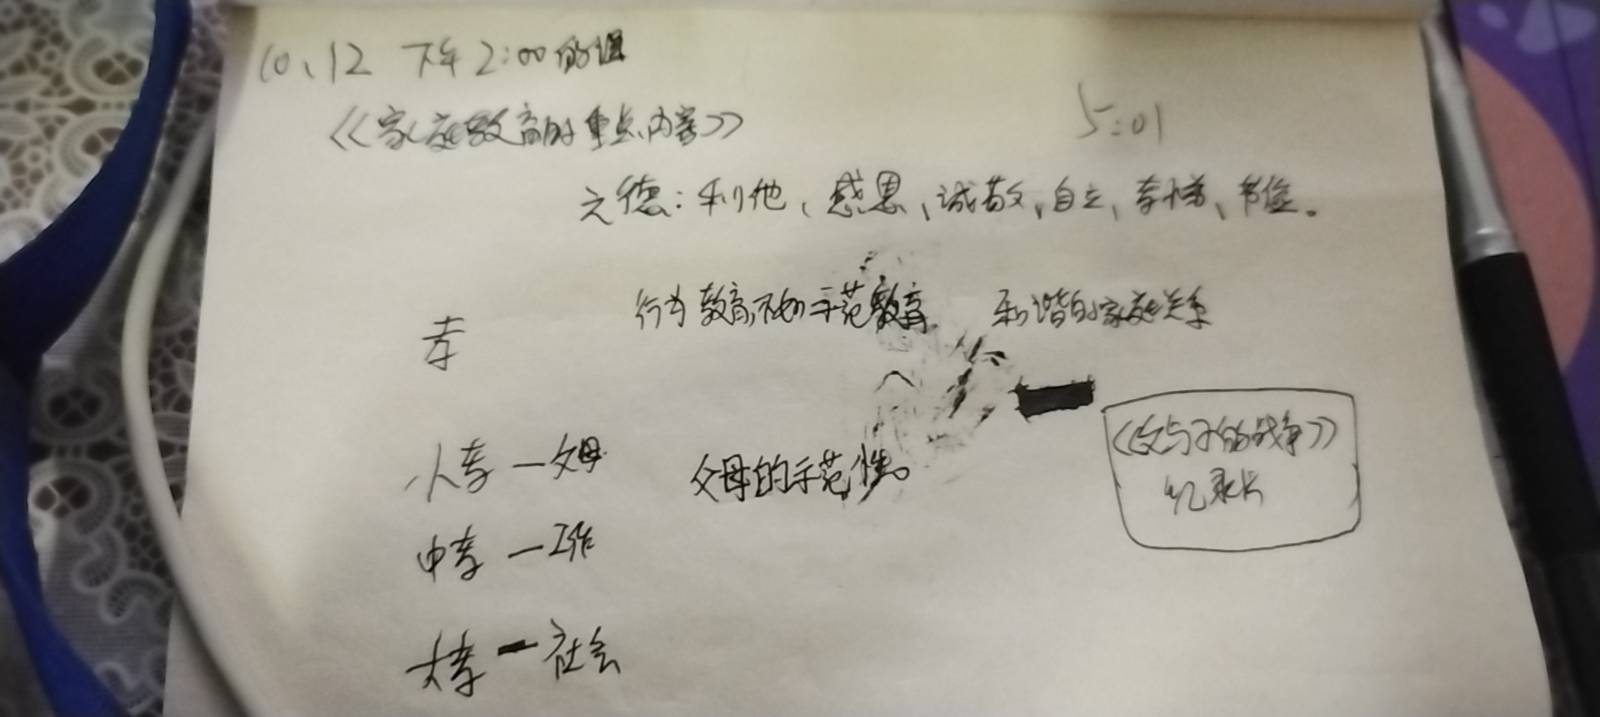 10、12 下午2:00的课
《家庭教育的重点内容》
5:01
六德：利他、感恩、诚敬、自立、孝悌、节俭。
行为教育不如示范教育 和谐的家庭关系
孝
小孝—父母 父母的示范性。
《父与子的战争》
纪录片
中孝—工作
大孝—社会